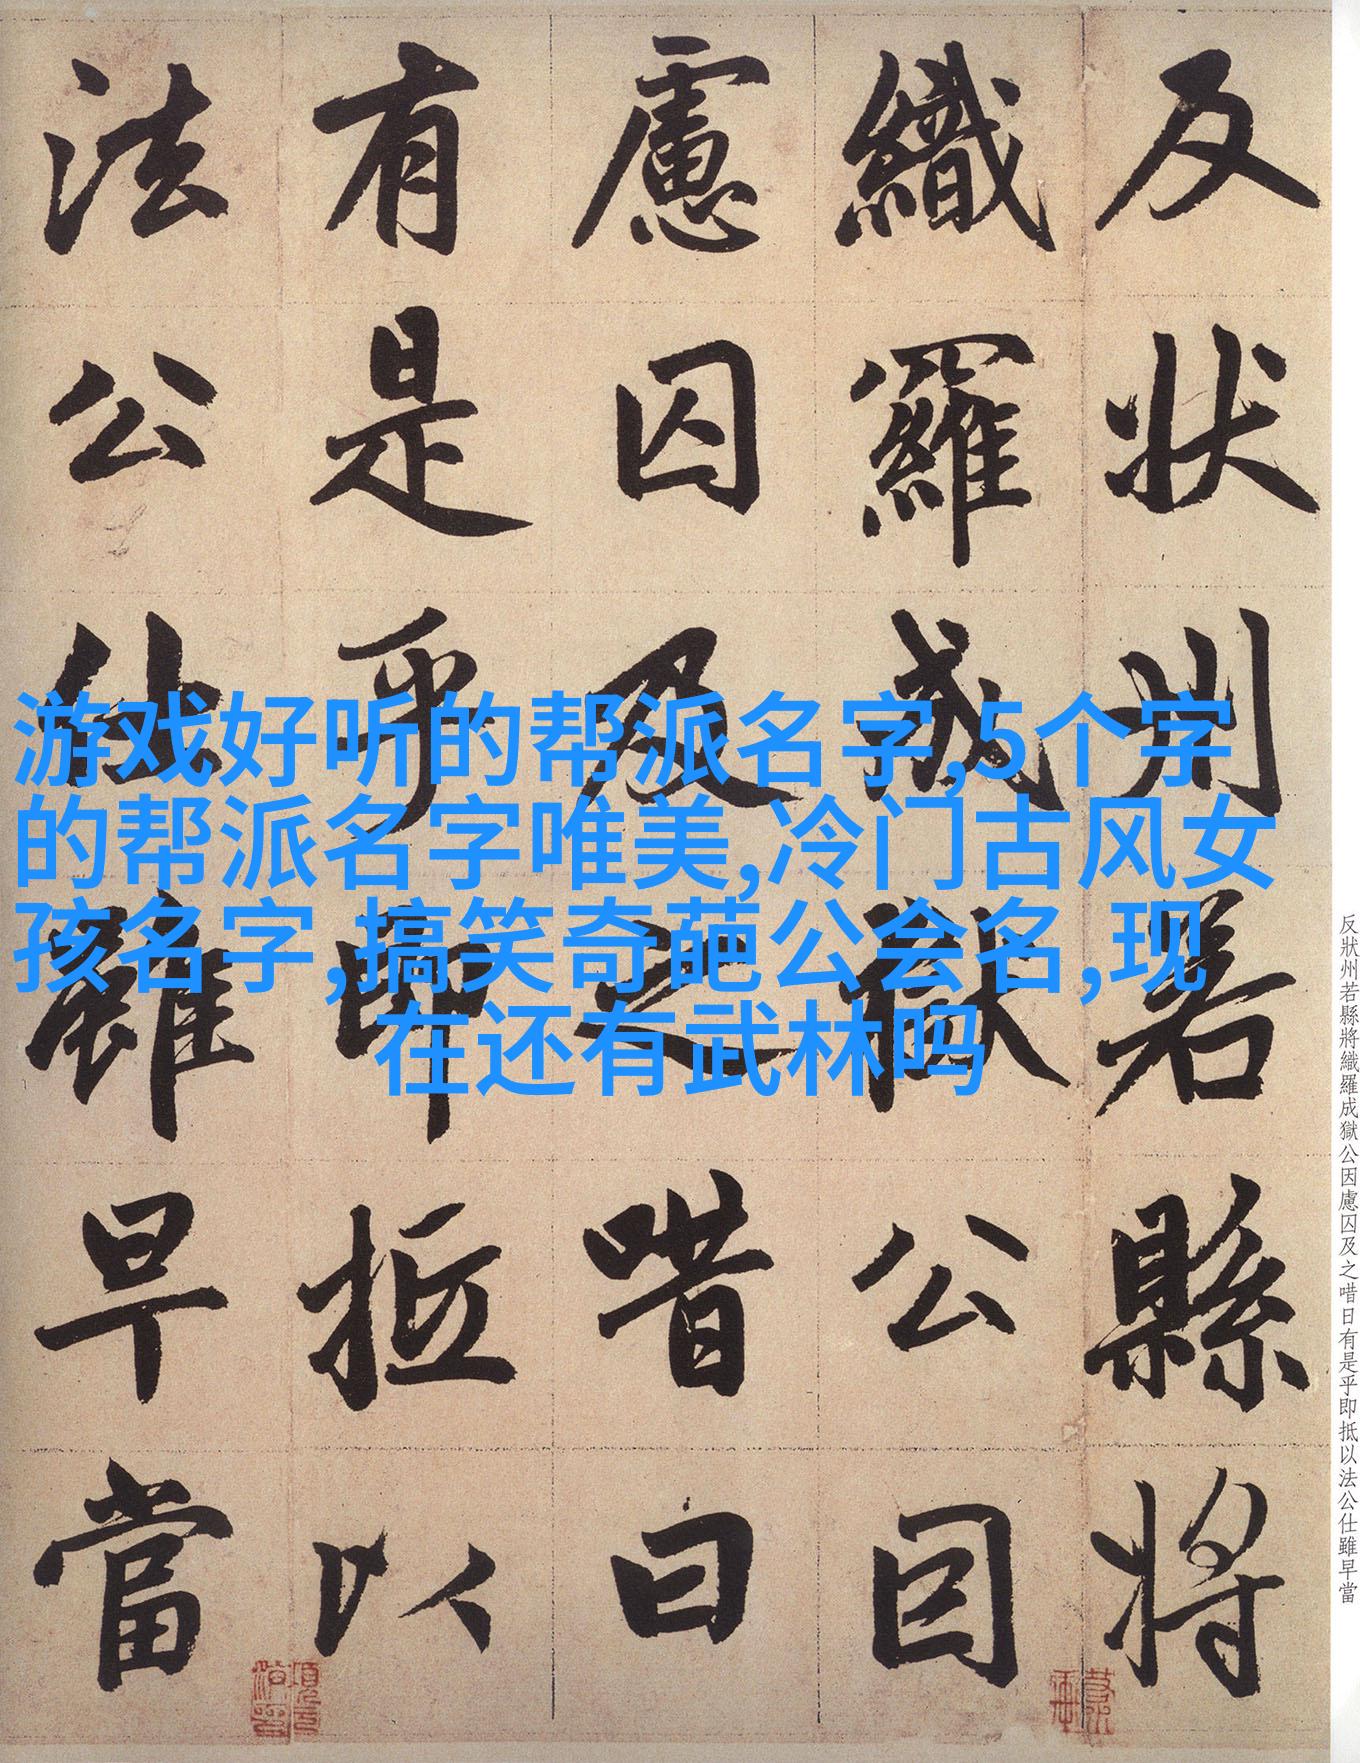 反状州若縣將
織羅成獄公因
慮囚及之唶曰
有是乎即抵以
法公仕雖早當
游戏好听的帮派名字,5个字
的帮派名字唯美,冷门古风女
孩名字,搞笑奇葩公会名,现
在还有武林吗
反狀州若縣將織羅成獄公因慮囚及之唶日有是乎即抵以法公仕雖早當